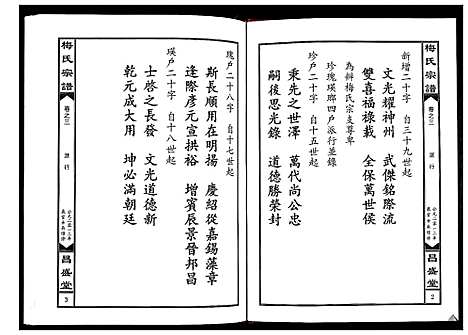 梅氏宗譜
卷之三
派行
昌盛堂
2
新增二十字 自三十九世起
文光耀神州 武傑銘際流
雙喜福祿載 全保萬世侯
為辯梅氏宗支尊卑
珍瑰瑛瑯四户派行並錄
珍户二十字 自十五世起
秉先之世澤 萬代尚公忠
嗣後思光錄 道德勝榮封
瑰户二十八字 自十七世起
斯長順用在明揚 慶紹從嘉錫藻章
逢際彦元宣拱裕 增賓辰景晉邦昌
瑛户二十字 自十八世起
士啟之長發 文光道德新
乾元成大用 坤必滿朝廷
梅氏宗譜
卷之三
派行
昌盛堂
3